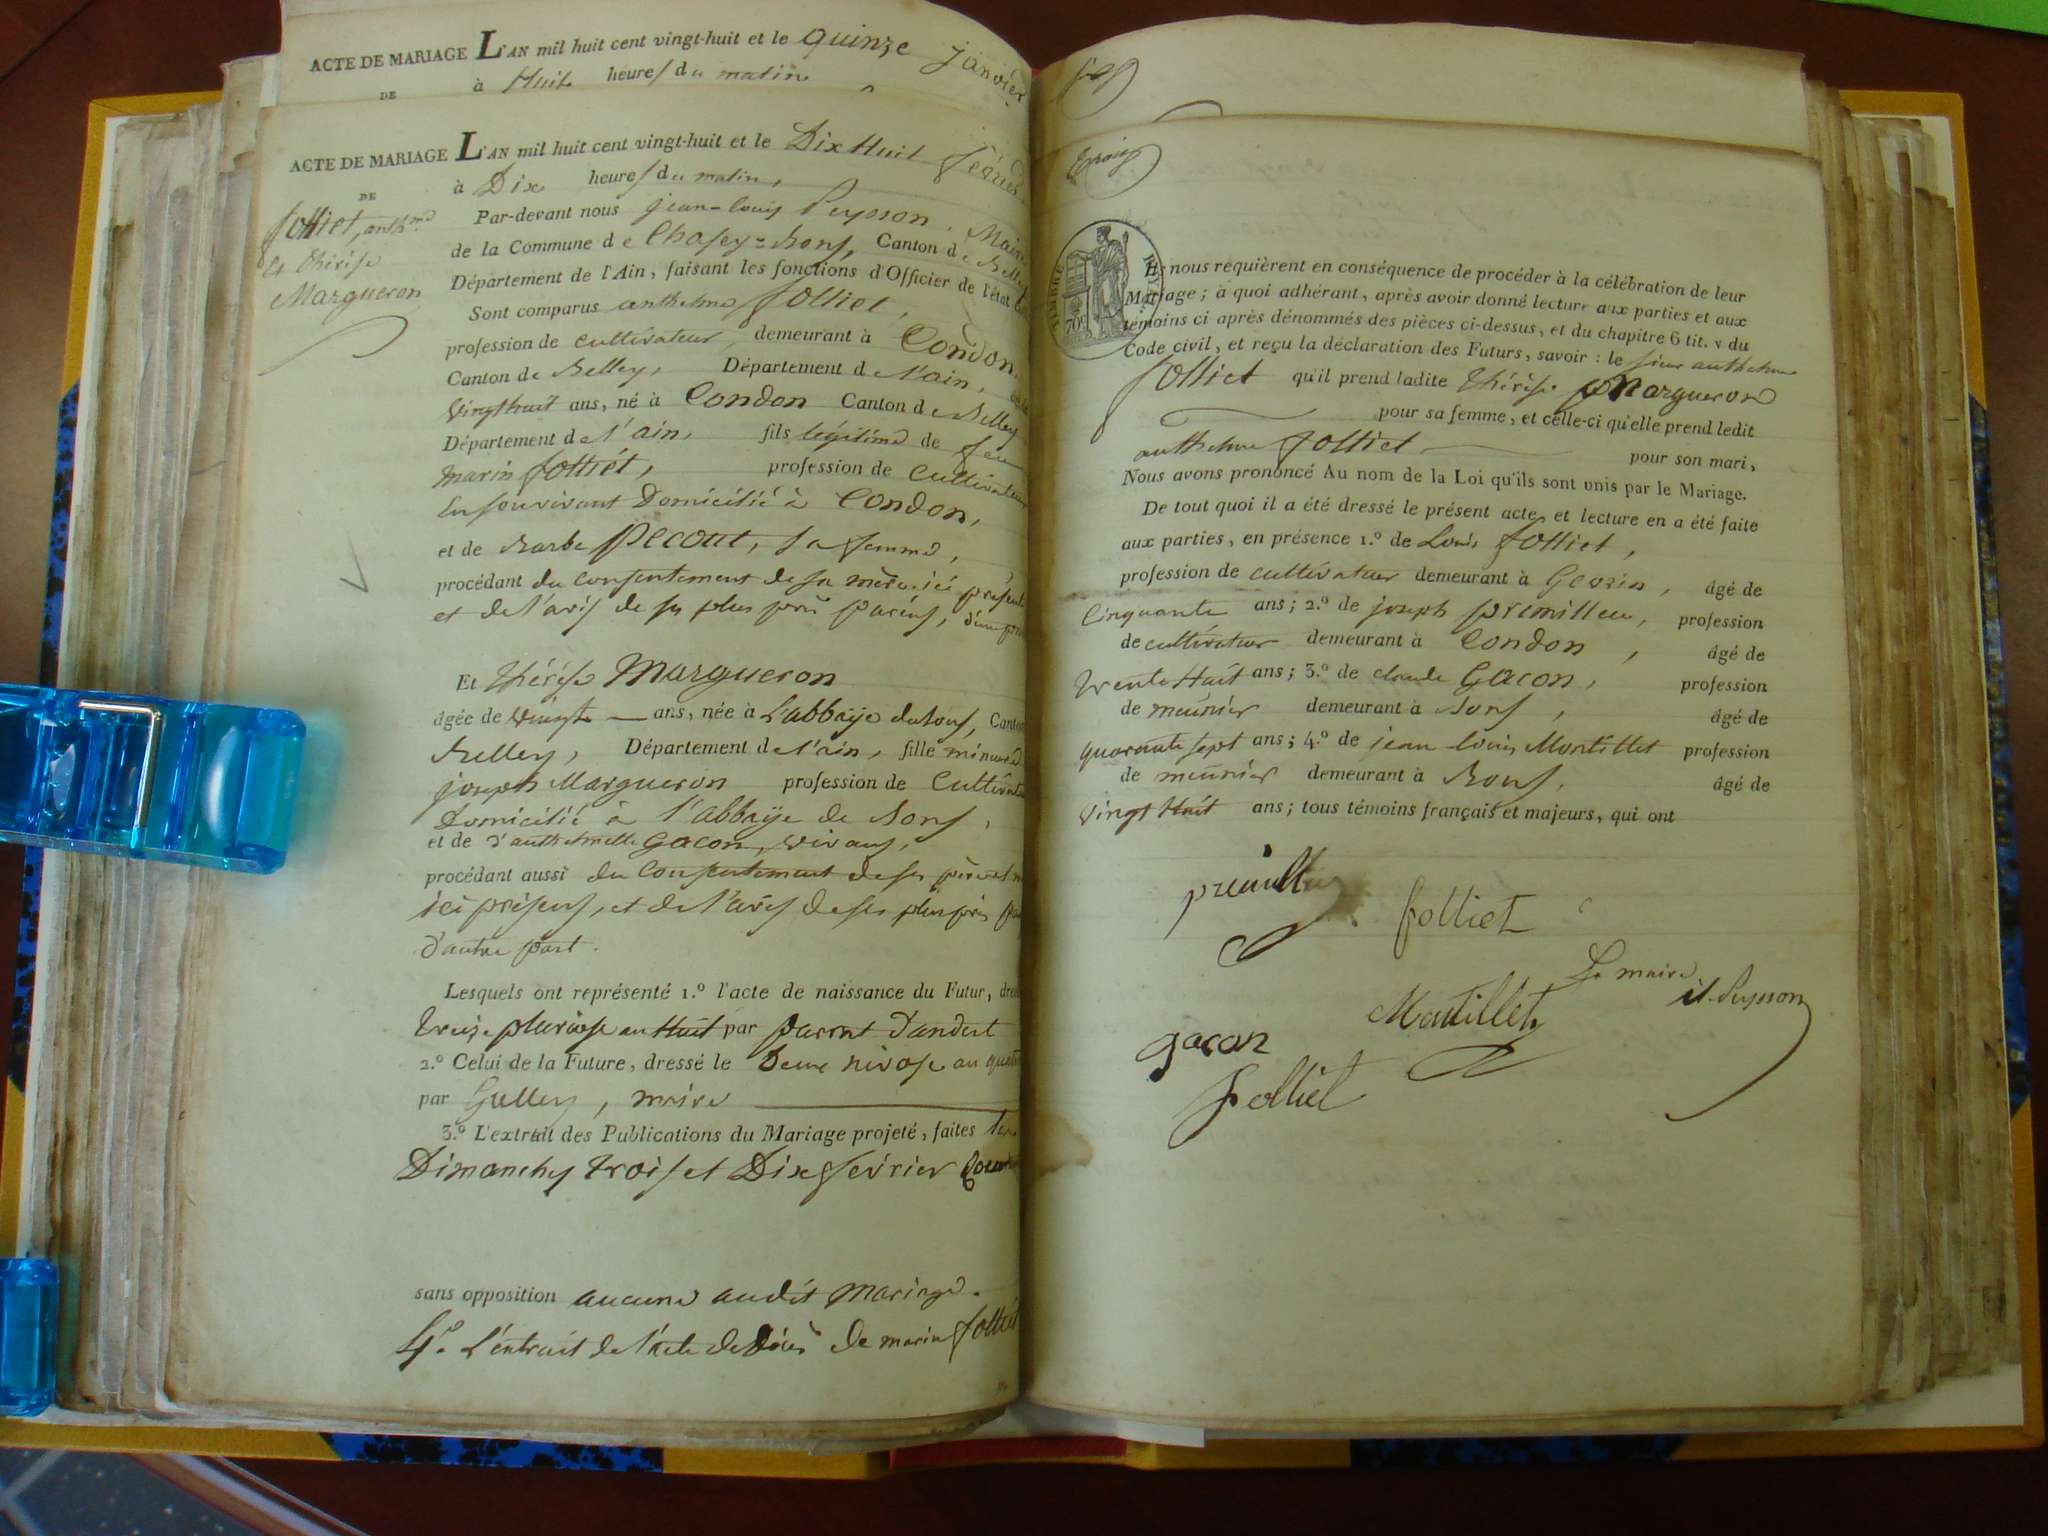 ACTE DE MARIAGE L'AN mil huit cent vingt-huit et le quinze janvier
DE à Huit heures du matin
ACTE DE MARIAGE L'AN mil huit cent vingt-huit et le Dix Huit
DE à Dix heures du matin,
folliet, anthme
et thérèse
Margueron
Par-devant nous jean-louis Peysson, Maire
de la Commune de Chasey-Bons, Canton de Belley
Département de l'Ain, faisant les fonctions d'Officier de l'état
Sont comparus anthelme folliet,
profession de cultivateur, demeurant à Condon,
Canton de Belley, Département de l'ain,
vingt huit ans, né à Condon Canton de Belley
Département de l'ain, fils légitime de feu
marin folliet, profession de cultivateur
En son vivant Domicilié à Condon,
et de Barbe Pecout, sa femme,
procédant du consentement de sa mère ici présente
et de l'avis de ses plus près parens, d'une part
Et thérèse Margueron
âgée de vingt ans, née à L'abbaye de Bons, Canton
Belley, Département de l'ain, fille mineure
joseph Margueron profession de Cultivateur
Domicilié à l'abbaye de Bons,
et de d'anthelmette Gacon, vivans,
procédant aussi du Consentement de ses père et
ici présens, et de l'avis de ses plus près
d'autre part.
Lesquels ont représenté 1.º l'acte de naissance du Futur,
treize pluviose an Huit par parrat d'andert
2.º Celui de la Future, dressé le Deux nivose an
par Gulley, maire
3.º L'extrait des Publications du Mariage projeté, faites les
Dimanches trois et Dix février Courant
sans opposition aucune audit Mariage.
4º. L'extrait de l'acte de décès de marin folliet
TIMBRE ROYAL
70c
Et nous requièrent en conséquence de procéder à la célébration de leur
Mariage; à quoi adhérant, après avoir donné lecture aux parties et aux
témoins ci après dénommés des pièces ci-dessus, et du chapitre 6 tit. v du
Code civil, et reçu la déclaration des Futurs, savoir : le sieur anthelme
folliet qu'il prend ladite thérèse Margueron
pour sa femme, et celle-ci qu'elle prend ledit
anthelme folliet pour son mari,
Nous avons prononcé Au nom de la Loi qu'ils sont unis par le Mariage.
De tout quoi il a été dressé le présent acte, et lecture en a été faite
aux parties, en présence 1.º de Louis folliet,
profession de cultivateur demeurant à Gevrin, âgé de
Cinquante ans; 2.º de joseph premillieu, profession
de cultivateur demeurant à Condon, âgé de
trente Huit ans; 3.º de claude Gacon, profession
de meûnier demeurant à Bons, âgé de
quarante sept ans; 4.º de jean louis Montillet profession
de meûnier demeurant à Bons, âgé de
vingt Huit ans; tous témoins français et majeurs, qui ont
folliet
Le maire
Montillet
jl. Peysson
gacon
folliet